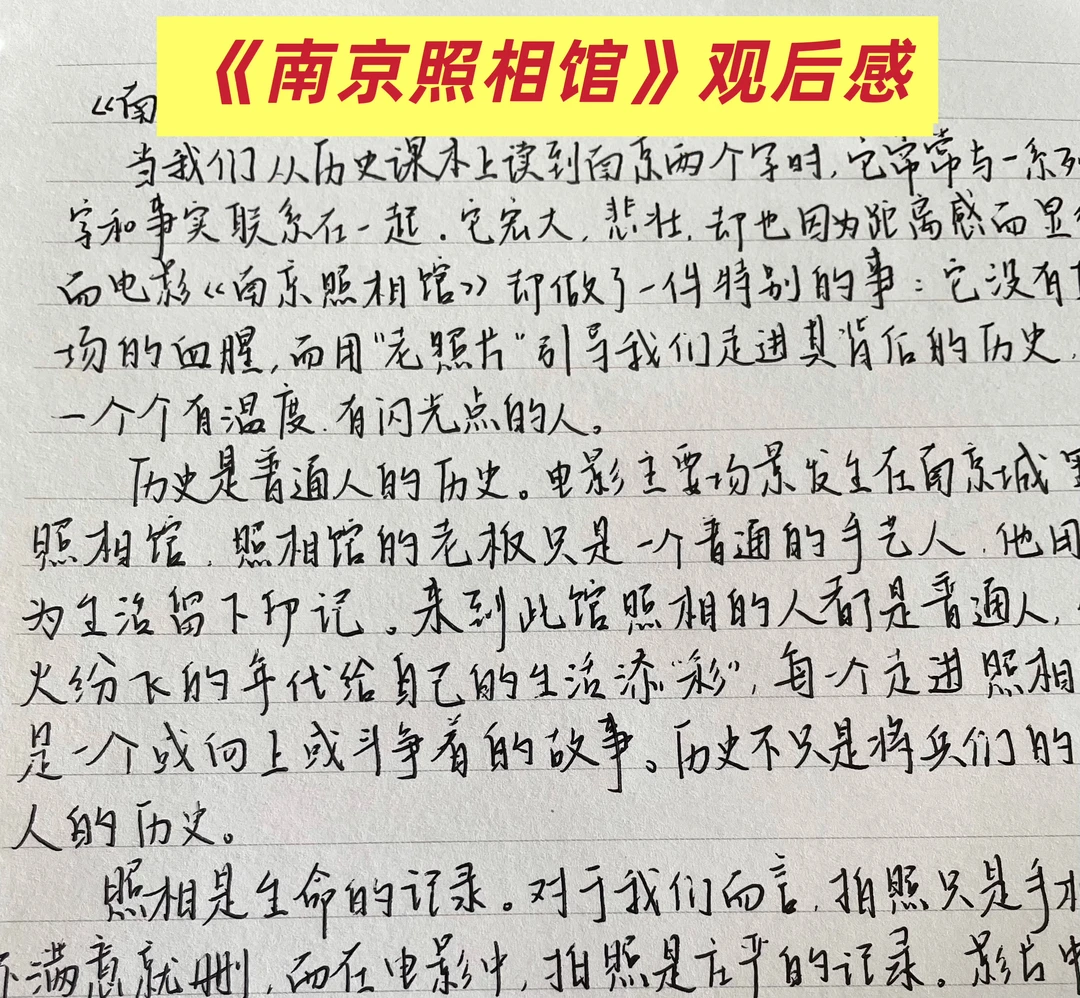 《南京照相馆》观后感
《南
当我们从历史课本上读到南京两个字时,它常常与一系列
字和事实联系在一起.它宏大,悲壮,却也因为距离感而显
而电影《南京照相馆》却做了一件特别的事:它没有
场的血腥,而用"老照片"引导我们走进其背后的历史,
一个个有温度.有闪光点的人。
历史是普通人的历史。电影主要场景发生在南京城
照相馆,照相馆的老板只是一个普通的手艺人.他用
为生活留下印记。来到此馆照相的人都是普通人,
火纷飞的年代给自己的生活添"彩",每一个走进照相
是一个或向上或斗争着的故事。历史不只是将兵们的
人的历史。
照相是生命的记录。对于我们而言,拍照只是手
不满意就删,而在电影中,拍照是庄严的记录。影片中